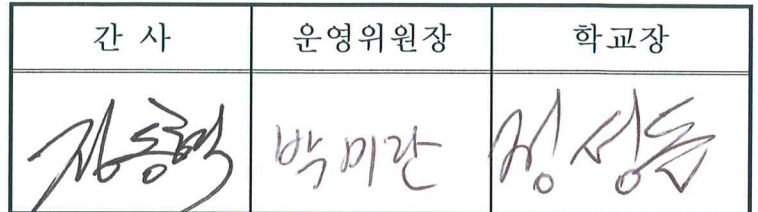 간 사 운영위원장 학교장
장동혁 박미란 정성돈